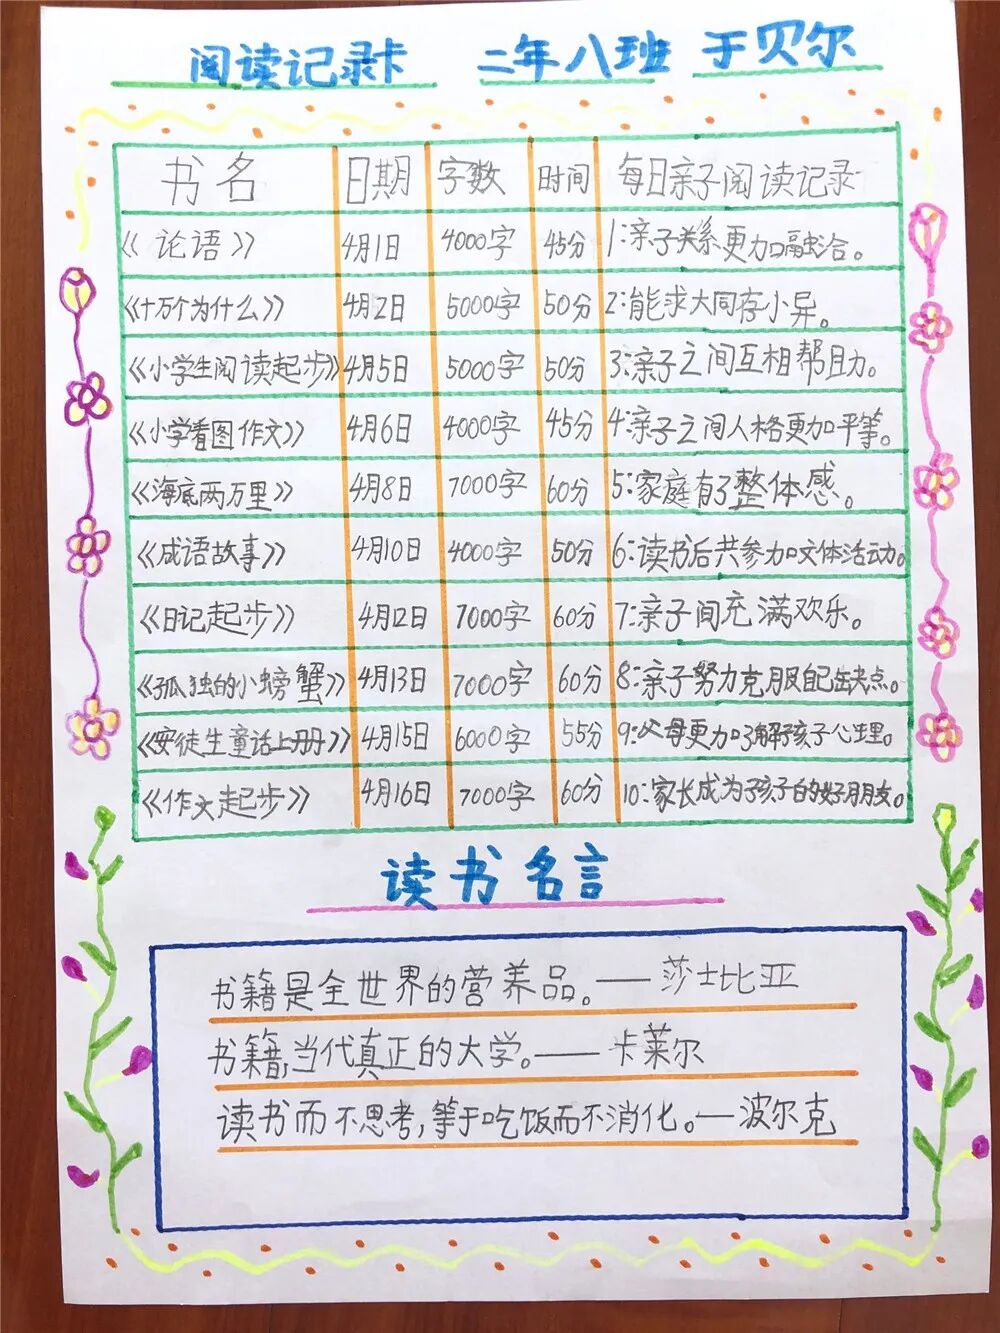 阅读记录卡 二年八班 于贝尔
书名 日期 字数 时间 每日亲子阅读记录
《论语》 4月1日 4000字 45分 1:亲子关系更加融洽。
《十万个为什么》 4月2日 5000字 50分 2:能求大同存小异。
《小学生阅读起步》 4月5日 5000字 50分 3:亲子之间互相帮助。
《小学看图作文》 4月6日 4000字 45分 4:亲子之间人格更加平等。
《海底两万里》 4月8日 7000字 60分 5:家庭有了整体感。
《成语故事》 4月10日 4000字 50分 6:读书后共参加文体活动。
《日记起步》 4月12日 7000字 60分 7:亲子间充满欢乐。
《孤独的小螃蟹》 4月13日 7000字 60分 8:亲子努力克服自己缺点。
《安徒生童话上册》 4月15日 6000字 55分 9:父母更加了解孩子心理。
《作文起步》 4月16日 7000字 60分 10:家长成为孩子的好朋友。
读书名言
书籍是全世界的营养品。——莎士比亚
书籍,当代真正的大学。——卡莱尔
读书而不思考,等于吃饭而不消化。—波尔克